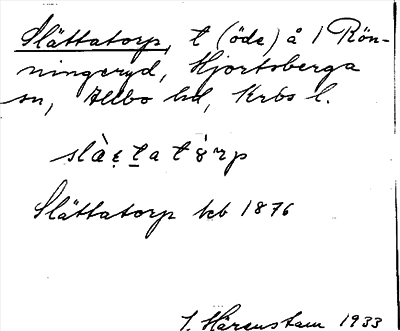 Slättatorp, t (öde) å 1 Rön-
ningeryd, Hjortsberga
sn, Allbo hd, Krbs l.
Slättatorp kb 1876
J. Härenstam 1933